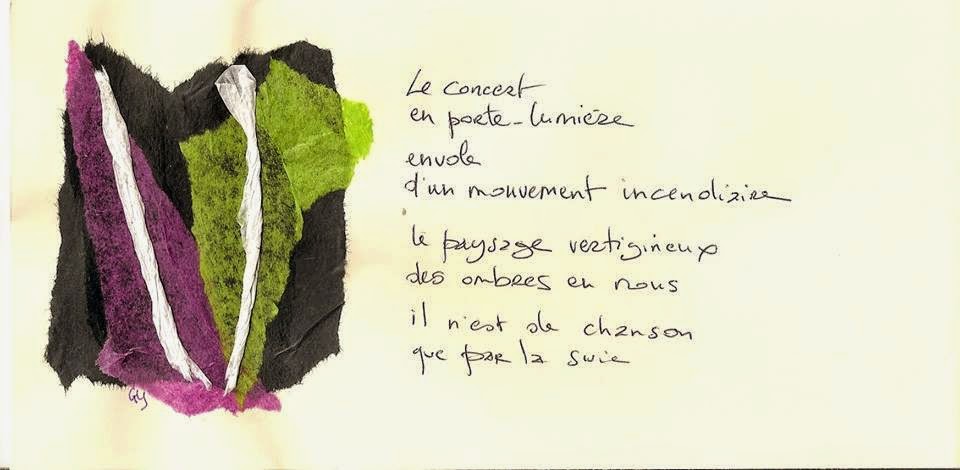 Le concert
en porte-lumière
envole
d'un mouvement incendiaire
le paysage vertigineux
des ombres en nous
il n'est de chanson
que par la suie
GG